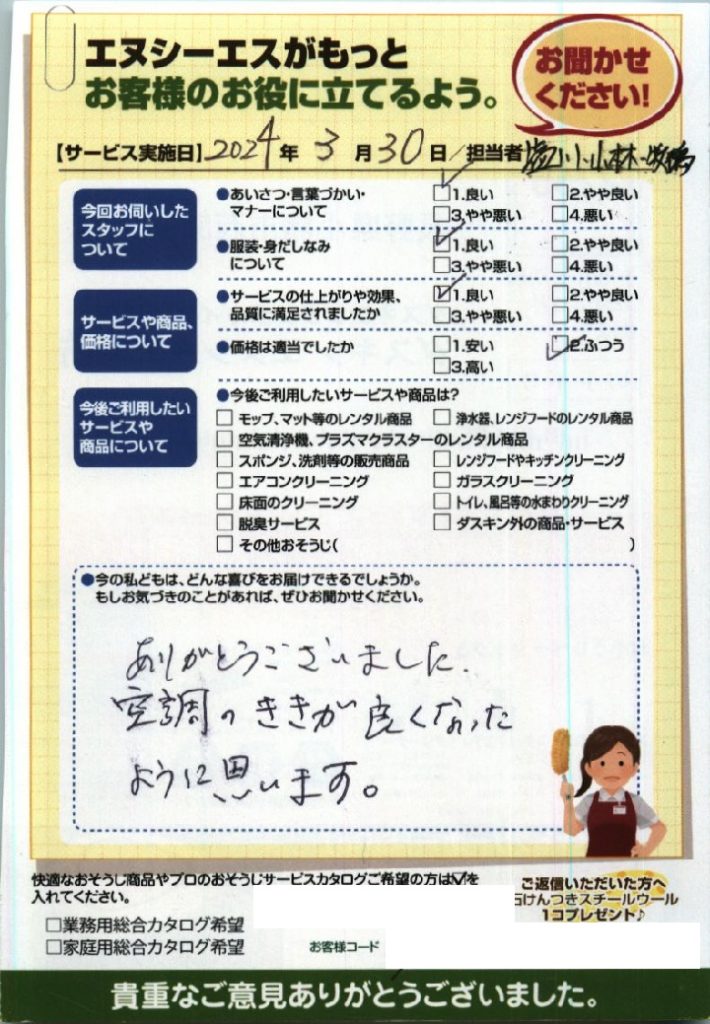 エヌシーエスがもっと
お客様のお役に立てるよう。
お聞かせ
ください!
【サービス実施日】2024年 3月30日/担当者 小林
今回お伺いした
スタッフに
ついて
●あいさつ・言葉づかい・
マナーについて
1.良い 2.やや良い
3.やや悪い 4.悪い
●服装・身だしなみ
について
1.良い 2.やや良い
3.やや悪い 4.悪い
サービスや商品、
価格について
●サービスの仕上がりや効果、
品質に満足されましたか
1.良い 2.やや良い
3.やや悪い 4.悪い
●価格は適当でしたか
1.安い 2.ふつう
3.高い
今後ご利用したい
サービスや
商品について
●今後ご利用したいサービスや商品は?
モップ、マット等のレンタル商品 浄水器、レンジフードのレンタル商品
空気清浄機、プラズマクラスターのレンタル商品
スポンジ、洗剤等の販売商品 レンジフードやキッチンクリーニング
エアコンクリーニング ガラスクリーニング
床面のクリーニング トイレ、風呂等の水まわりクリーニング
脱臭サービス ダスキン外の商品・サービス
その他おそうじ( )
●今の私どもは、どんな喜びをお届けできるでしょうか。
もしお気づきのことがあれば、ぜひお聞かせください。
ありがとうございました.
空調のききが良くなった
ように思います。
快適なおそうじ商品やプロのおそうじサービスカタログご希望の方は✓を
入れてください。
□業務用総合カタログ希望
□家庭用総合カタログ希望
お客様コード
ご返信いただいた方へ
石けんつきスチールウール
1コプレゼント♪
貴重なご意見ありがとうございました。